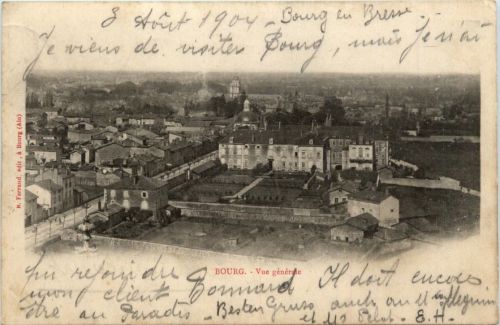 3 Août 1904 Bourg en Bresse
Je viens de visiter Bourg, mais je n'ai
N. Ferrand, édit., à Bourg (Ain)
BOURG. - Vue générale
pu rejoindre Il doit encore
mon client Bonnard
être au Paradis. Besten Gruss auch an
et E. H.